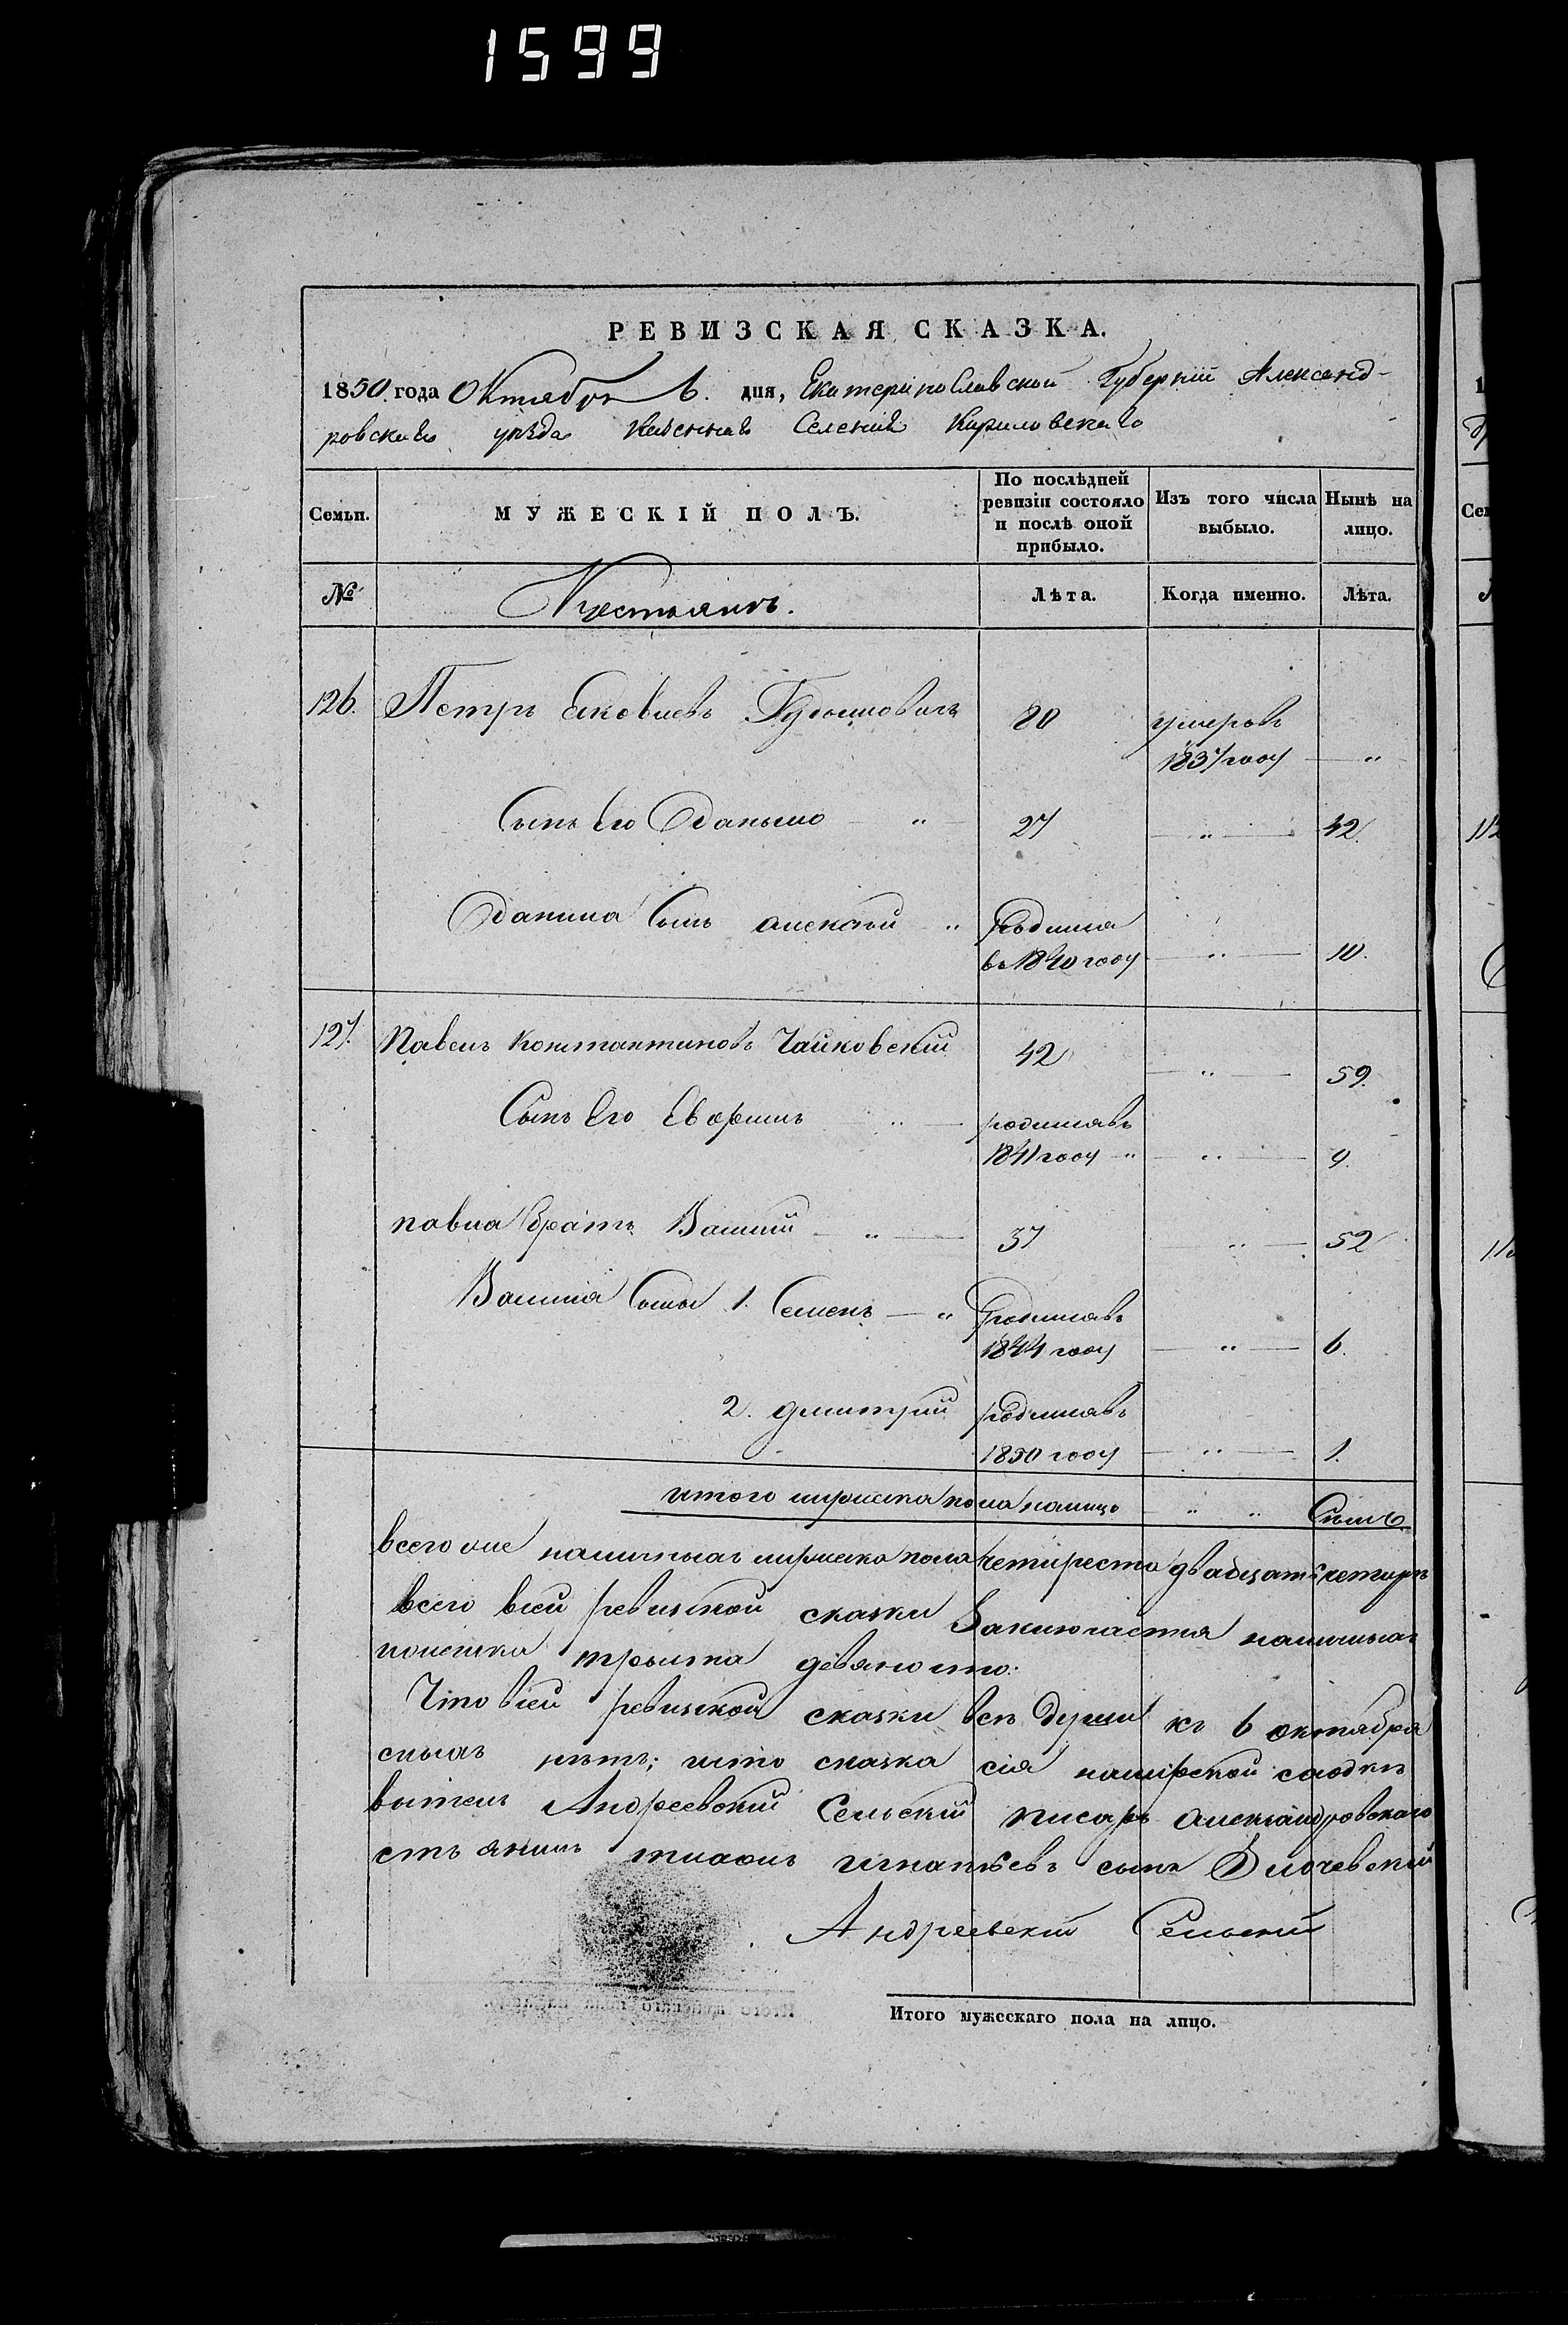 1599
РЕВИЗСКАЯ СКАЗКА.
1850. года Октября 6. дня, Екатеринославской Губерніи Александ-
ровскаго уѣзда Казеннаго Селенія Кириловскаго
Семьи.
МУЖЕСКІЙ ПОЛЪ.
По послѣдней ревизіи состояло и послѣ оной прибыло.
Изъ того числа выбыло.
Нынѣ на лицо.
№
Лѣта.
Когда именно.
Лѣта.
126. Петръ Яковлевъ 80 умеръ въ
1837 году „
Сынъ Его Даныло „ 27 „ 42.
Данила Сынъ алексѣй „ Родился
въ 1840 году „ 10.
127. Павелъ Константиновъ Чайковскій 42 „ 59.
Сынъ Его Евфимъ „ родился въ
1841 году „ „ 9.
павла братъ Василій „ 37 „ 52
Василія Сыны 1. Семенъ „ родился въ
1844 году „ 6.
2. дмитрий родился въ
1850 году „ 1.
итого мужеска пола налицо „ „ Семь
всего наличныхъ мужеска пола четыреста двадцать четыре
всего всей ревизской сказки Заключается наличныхъ
триста девяносто.
Что всей ревизской сказки всѣ души къ 6 октября
нѣтъ; что сказка сія
Андреевский Сельский писарь александровскаго
игнатьевъ сынъ
Андреевскій Сельскій
Итого мужескаго пола на лицо.